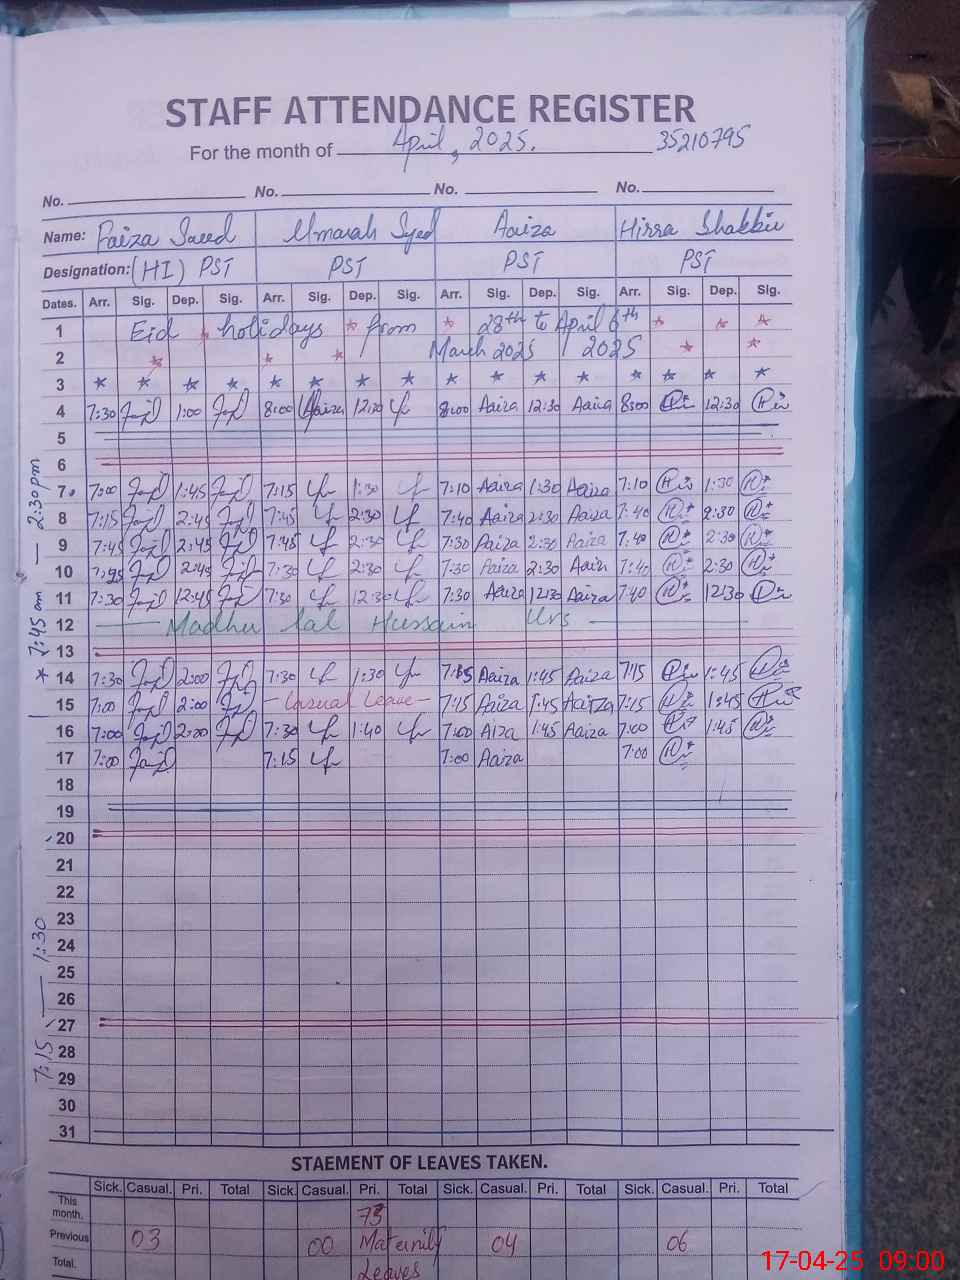 STAFF ATTENDANCE REGISTER
For the month of April, 2025. 35210795
No. No. No. No.
Name: Faiza Saeed Umarah Syed Aaiza Hirra Shabbir
Designation: (HI) PST PST PST PST
Dates. Arr. Sig. Dep. Sig. Arr. Sig. Dep. Sig. Arr. Sig. Dep. Sig. Arr. Sig. Dep. Sig.
1 Eid holidays from 28th to April 6th
2 March 2025 2025
3
4 7:30 1:00 8:00 12:30 8:00 Aaiza 12:30 Aaiza 8:00 12:30
5
6
7 7:00 1:45 7:15 1:30 7:10 Aaiza 1:30 Aaiza 7:10 1:30
8 7:15 2:45 7:45 2:30 7:40 Aaiza 2:30 Aaiza 7:40 2:30
9 7:45 2:45 7:45 2:30 7:30 Aaiza 2:30 Aaiza 7:40 2:30
10 2:45 7:30 2:30 7:30 Aaiza 2:30 Aaiza 7:40 2:30
11 7:30 12:45 7:30 12:30 7:30 Aaiza 12:30 Aaiza 7:40 12:30
12 Madhu lal Hussain Urs
13
14 7:30 2:00 7:30 1:30 7:15 Aaiza 1:45 Aaiza 7:15 1:45
15 7:00 2:00 - Casual Leave - 7:15 Aaiza 1:45 Aaiza 7:15 1:45
16 7:00 2:00 7:30 1:40 7:00 Aaiza 1:45 Aaiza 7:00 1:45
17 7:00 7:15 7:00 Aaiza 7:00
18
19
20
21
22
23
24
25
26
27
28
29
30
31
* 7:45 am — 2:30 pm
7:15 — 1:30
STAEMENT OF LEAVES TAKEN.
Sick. Casual. Pri. Total Sick. Casual. Pri. Total Sick. Casual. Pri. Total Sick. Casual. Pri. Total
This month. 73
Previous 03 00 Maternity 04 06
Total. Leaves
17-04-25 09:00